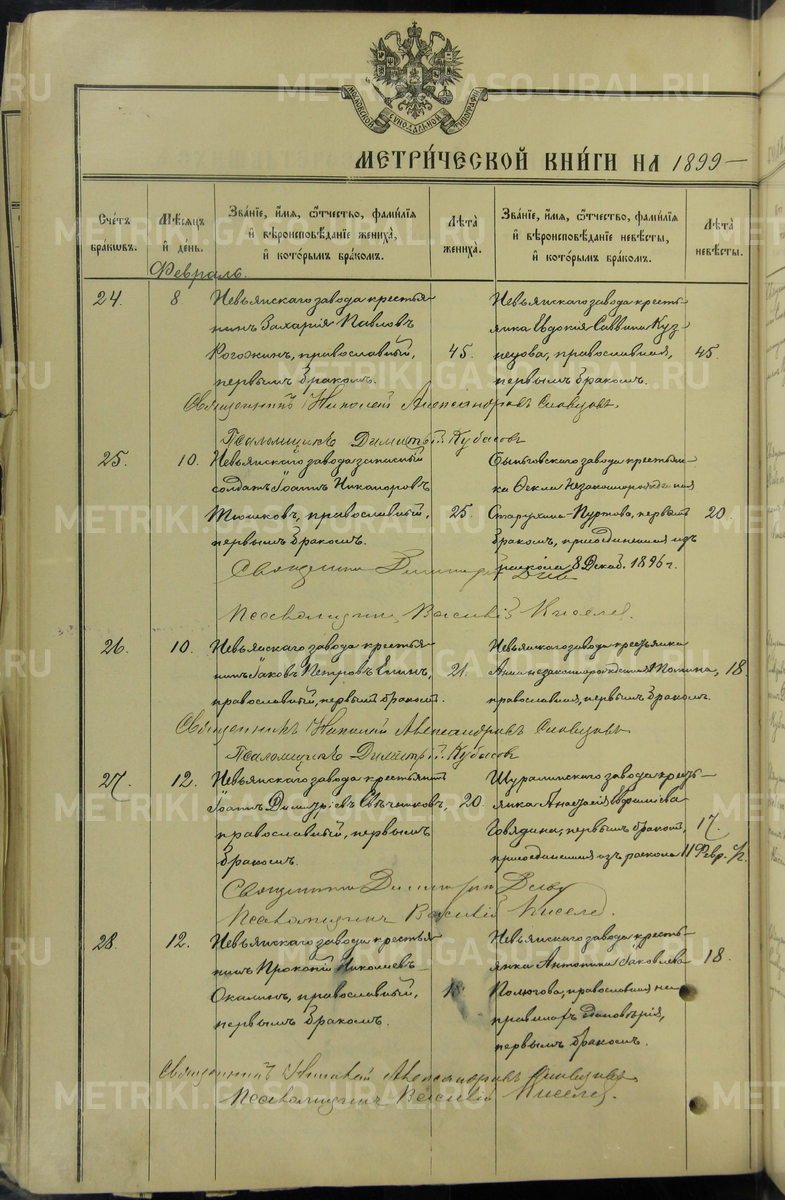 МЕТРИ́ЧЕСКОЙ КНИ́ГИ НА 1899
Сче́тъ бра́ковъ.
Мѣ́сяцъ и҆ день.
Зва́нїе, и҆́мя, ѻ҆́тчество, фами́лїя и҆ вѣроисповѣ́данїе жениха̀, и҆ кото́рымъ бра́комъ.
Лѣта̀ жениха̀.
Зва́нїе, и҆́мя, ѻ҆́тчество, фами́лїя и҆ вѣроисповѣ́данїе невѣ́сты, и҆ кото́рымъ бра́комъ.
Лѣта̀ невѣ́сты.
Февраль.
24.
8
Невьянскаго завода крестья-
нинъ Захарія Павловъ
Рогожинъ, православный,
первымъ бракомъ.
45.
Невьянскаго завода кресть-
янка Евдокия Саввина Куз-
нецова, православная,
первымъ бракомъ.
45.
Священникъ Николай Александровъ
Псаломщикъ Димитрій Кубасовъ
25.
10.
Невьянскаго завода запасный
солдатъ Іоаннъ Никаноровъ
Тюшковъ, православный,
первымъ бракомъ.
25.
Быньговскаго завода крестьян-
ка Ѳекла Незаконнорожденная
первымъ
бракомъ, присоединенная изъ
раскола 8 Декаб. 1896 г.
20.
Священникъ
Псаломщикъ Василій Киселев.
26.
10.
Невьянскаго завода крестья-
нинъ Іаковъ Петровъ
православный, первымъ бракомъ.
21.
Невьянскаго завода крестьянка
Анна незаконнорожденная
православная, первымъ бракомъ.
18.
Священникъ Николай Александровъ
Псаломщикъ Димитрій Кубасовъ
27.
12.
Невьянскаго завода крестьянинъ
Іоаннъ Димитріевъ Свѣчниковъ,
православный, первымъ
бракомъ.
20.
Шуралинскаго завода кресть-
янка Анастасія Евфиміева
Говядина, первымъ бракомъ,
присоединенная изъ раскола 11 Февр.
17.
Священникъ Димитрій
Псаломщикъ Василій Киселев.
28.
12.
Невьянскаго завода крестья-
нинъ Прокопій Николаевъ
Окалинъ, православный,
первымъ бракомъ.
Невьянскаго завода кресть-
янка Антонина Іаковлева
Полюгова, православная на
правилахъ Единовѣрія,
первымъ бракомъ.
18.
Священникъ Николай Александровъ
Псаломщикъ Василій Киселев.
METRIKI.GASO-URAL.RU